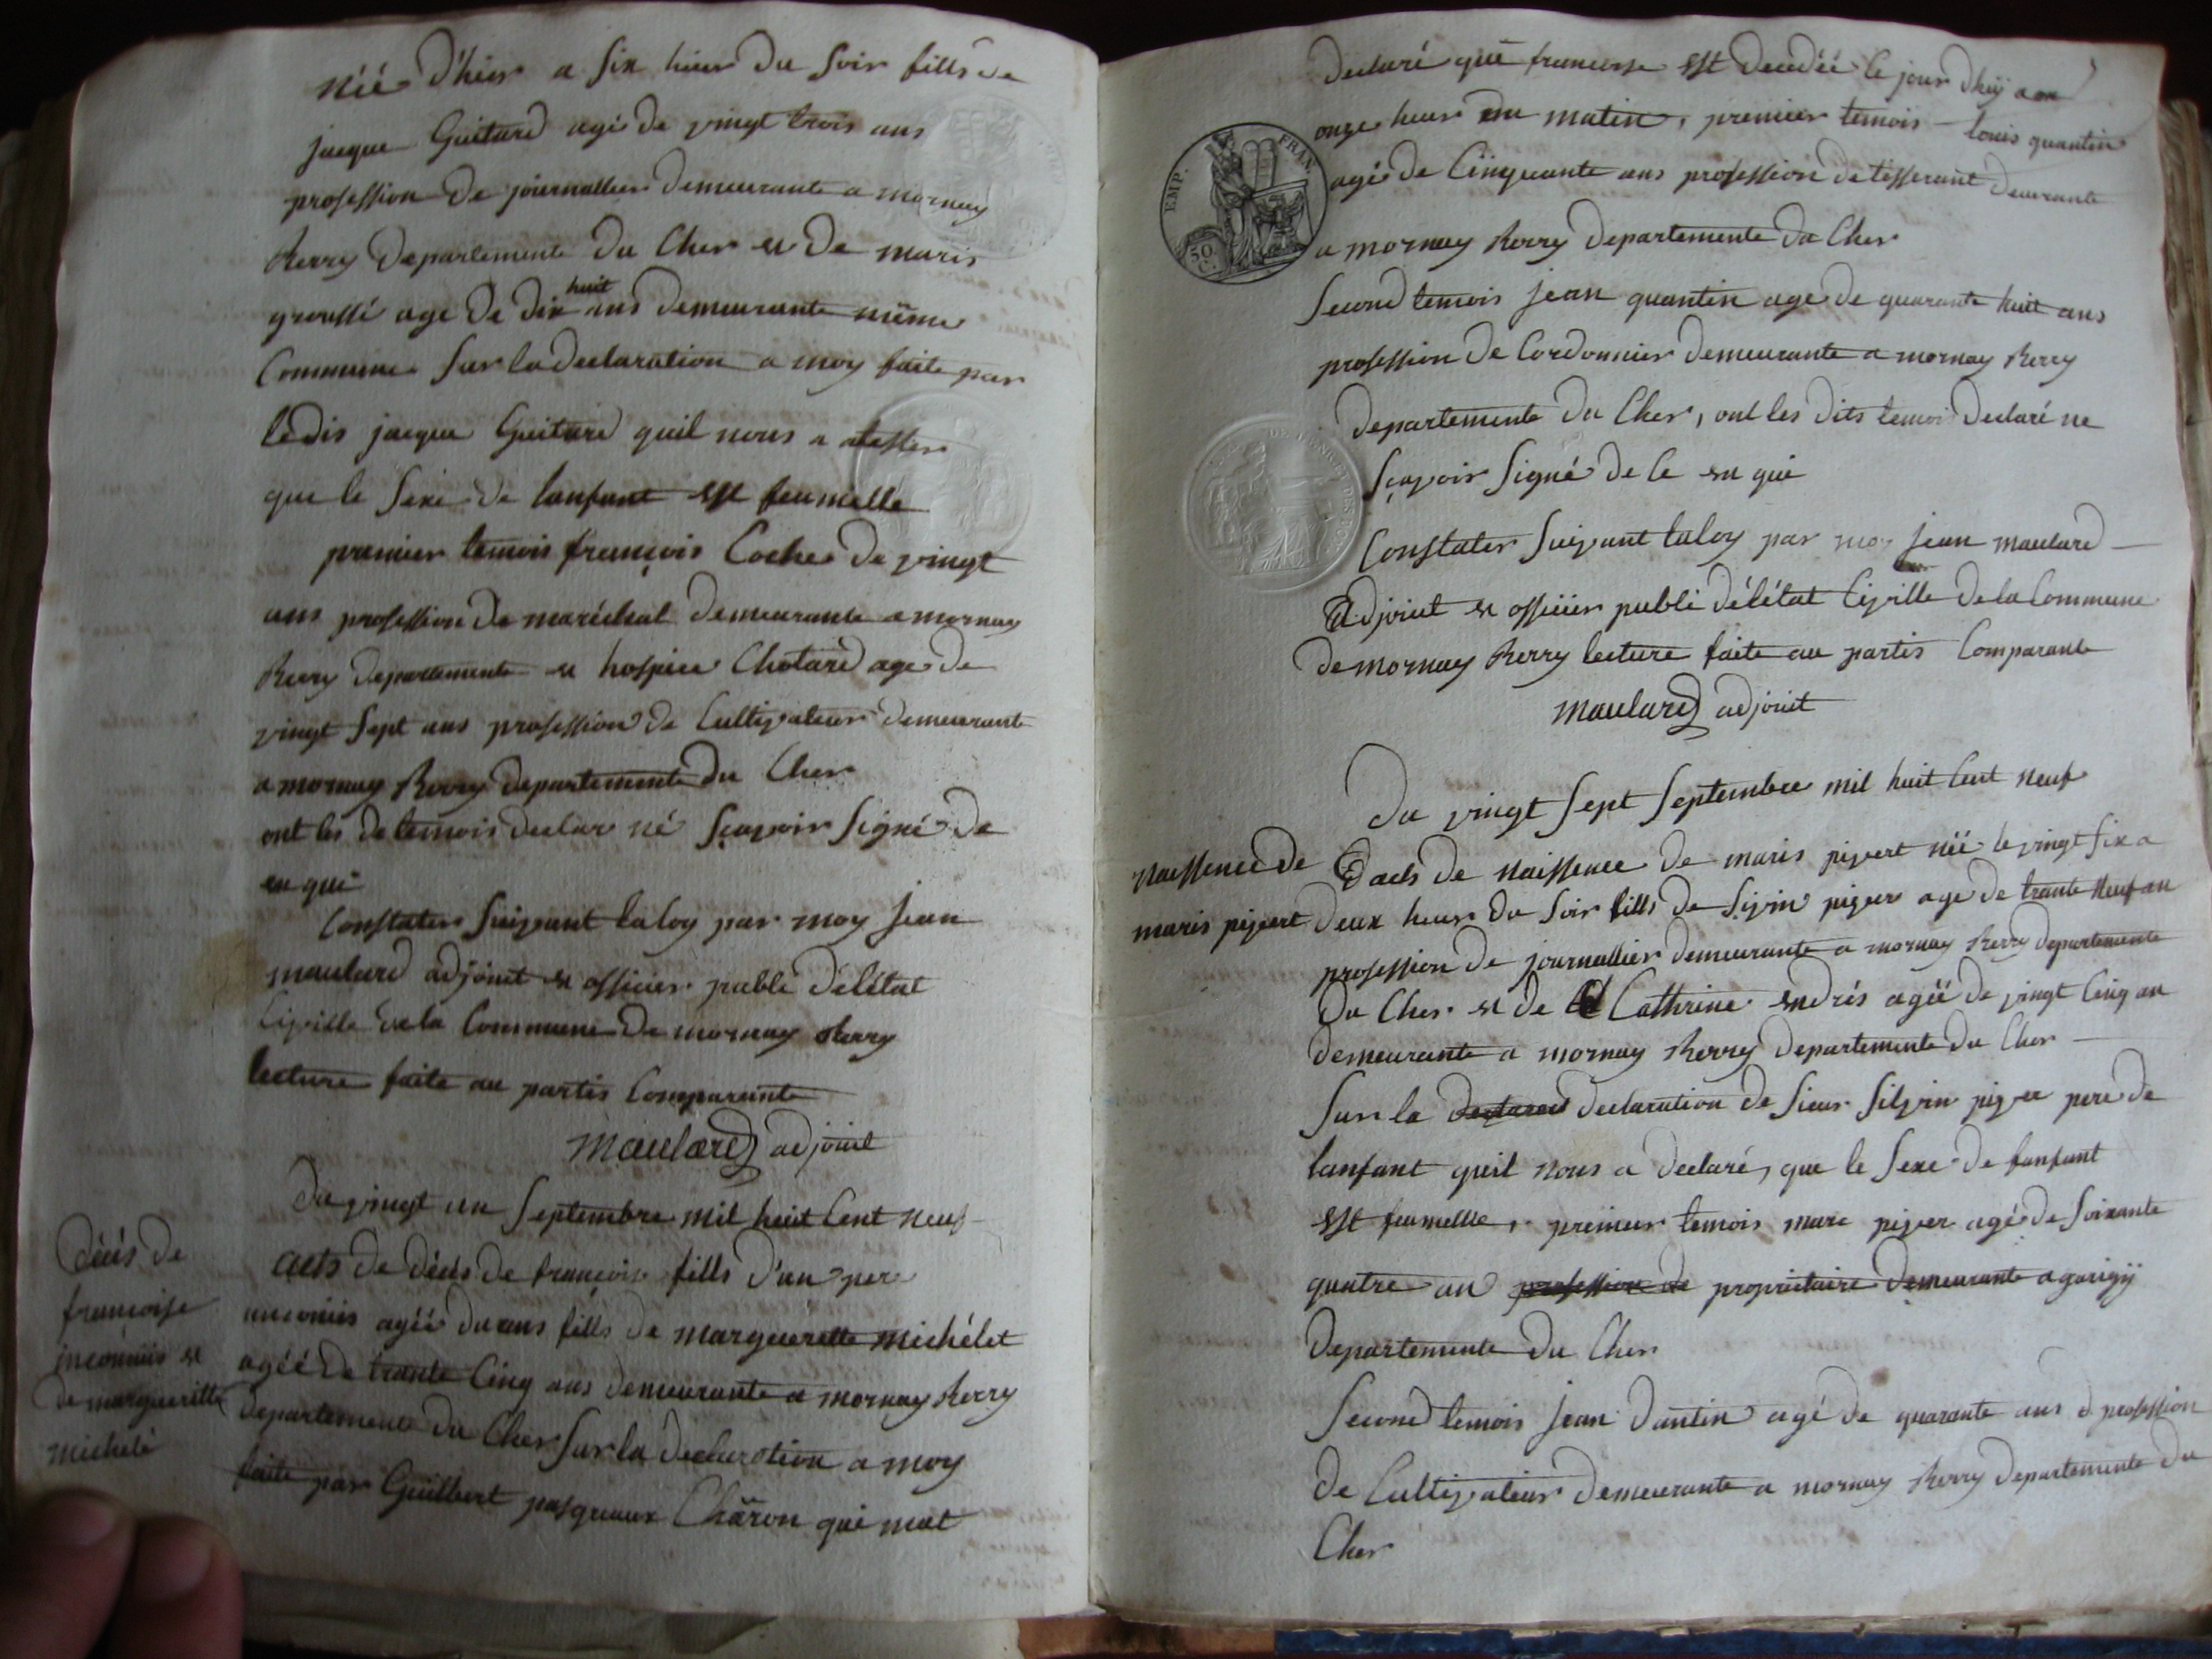 néé d'hier a six heur du soir fills de
jacque Guitard agé de vingt trois ans
profession de journallier demeurante a mornay
Berry departemente du Cher et de maris
groussé age de dix huit ans demeurante mëme
Commune sur la declaration a moy faite par
ledis jacque Guitard quil nous a atester
que le sexe de lanfant est feumelle
premier temois françois Coche de vingt
ans profession de maréchal demeurante a mornay
Berry departemente et hospice Chotard age de
vingt sept ans profession de Cultivateur demeurante
a mornay Berry departemente du Cher
ont les de temois declar né sçavoir signé de
en qui
Constater suivant la loy par moy jean
maulard adjoint et officier publi délétat
Civille de la Commune de mornay Berry
lecture faite au partis Comparante
maulard adjoint
du vingt un septembre mil huit Cent neuf
décés de
françoise
inconnüs et
de margueritte
michelé
acts de décés de françoise fills d'un per
inconnis agéé du ans fills de marguerette michélet
agéé de trante Cinq ans demeurante a mornay Berry
departemente du Cher sur la declaration a moy
faite par Guilbert pasquaux Chäron qui mat
declaré què francoise est decedéé le jour dhuÿ a
onze heur du matin, premier temois louis quantin
agé de Cinquante ans profession de tesserant deurante
a mornay Berry departemente du Cher
Second temois jean quantin age de quarante huit ans
profession de Cordonnier demeurante a mornay Berry
departemente du Cher, ont les dits temois declaré ne
sçavoir signé de Ce en qui
Constater suivant la loy par moy jean maulard
adjoint et officier publi délétat Civille de la Commune
de mornay Berry lecture faite au partis Comparante
maulard adjoint
EMP. FRAN.
50 C.
du vingt sept septembre mil huit Cent neuf
Naissence de
maris pivert
dacts de naissence de maris pivert néé le vingt six a
deux heur du soir fills de Sivin piver age de trante neuf an
profession de journallier demeurante a mornay Berry departemente
du Cher et de Cathrine endrés agéé de vingt Cinq an
demeurante a mornay Berry departemente du Cher
sur la declaration de sieur Silvin piver pere de
lanfant quil nous a declaré, que le sexe de fanfant
est feumelle, premier temois marc piver agé de soixante
quatre an profession de propriétaire demeurante a garigÿ
departemente du Cher
Second temois jean dantin agé de quarante ans d profession
de Cultivateur demeurante a mornay Berry departemente du
Cher